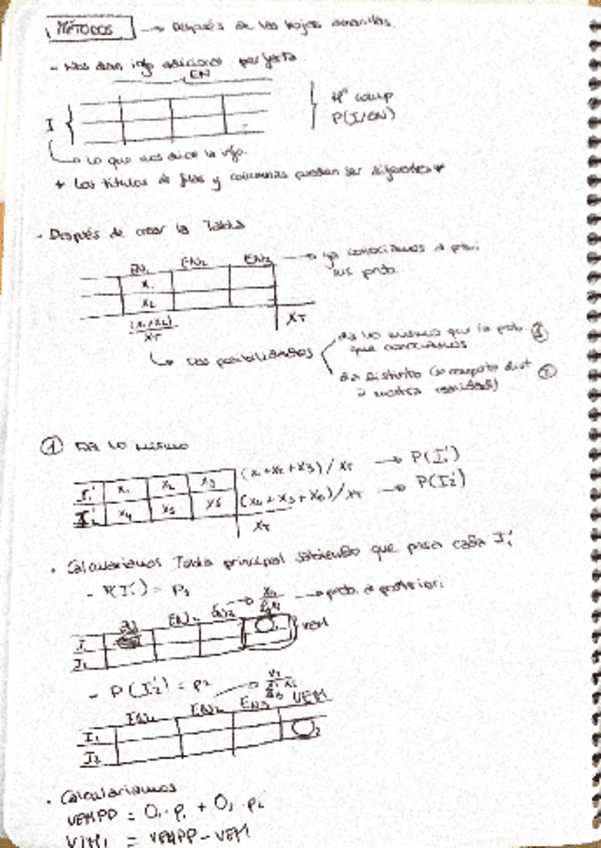 MÉTODOS → Después de las hojas amarillas.
- Nos dan info adicional perfecta
EN
I { } nº comp
P(I/EN)
Lo que nos dice la info.
* Los títulos de filas y columnas pueden ser diferentes *
- Después de crear la Tabla
EN1 EN2 EN3 → ya conocíamos a priori
x1 sus prob.
x2
(x1+x2)/XT XT
Dos posibilidades
da lo mismo que la prob. ①
que conocíamos
da Distinto (se comporta dist ②
a nuestra realidad)
① Da lo mismo
I1' x1 x2 x3 (x1+x2+x3)/XT → P(I1')
I2' x4 x5 (x4+x5+x6)/XT → P(I2')
XT
· Calcularíamos Tabla principal sabiendo que pasa cada Ii'
- P(I1') = P1
EN2 → prob. a posteriori
I1 VEM
I2
- P(I2') = P2
EN1 EN2 EN3 VEM
I1
I2
· Calcularíamos
VEMPD = O1·P1 + O2·P2
= VEMPD - VEM